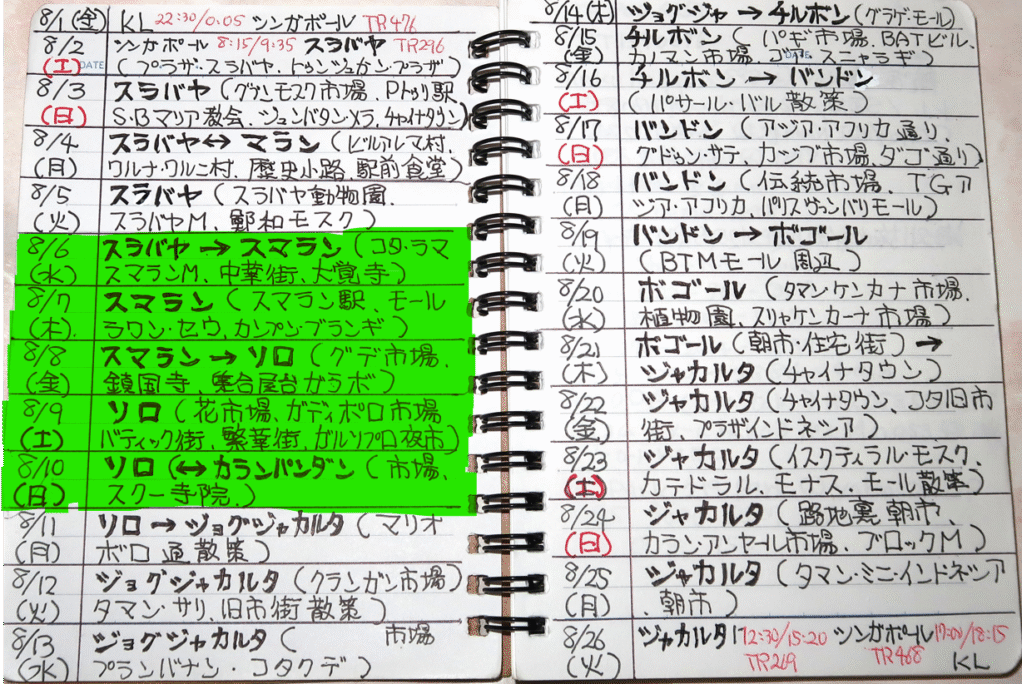 8/1(金) KL 22:30/0:05 シンガポール TR476
8/2 シンガポール 8:15/9:35 スラバヤ TR296
(土) DATE (プラザ・スラバヤ、トゥンジュガン・プラザ)
8/3 スラバヤ (グナンモスク市場、Pトゥリ駅
(日) S・Bマリア教会、ジュンバタン・メラ、チャイナタウン)
8/4 スラバヤ↔マラン (ビルアレマ村、
(月) ワルナ・ワルニ村、歴史小路、駅前食堂)
8/5 スラバヤ (スラバヤ動物園、
(火) スラバヤM、鄭和モスク)
8/6 スラバヤ→スマラン (コタ・ラマ
(水) スマランM、中華街、大覚寺)
8/7 スマラン (スマラン駅、モール
(木) ラワン・セウ、カンプン・ブランギ)
8/8 スマラン→ソロ (グデ市場、
(金) 鎮国寺、集合屋台ガラボ)
8/9 ソロ (花市場、ガディポロ市場
(土) バティック街、繁華街、ガルソプロ夜市)
8/10 ソロ (↔カランパンダン (市場、
(日) スクー寺院、)
8/11 ソロ→ジョグジャカルタ (マリオ
(月) ボロ通散策)
8/12 ジョグジャカルタ (クランガン市場)
(火) タマン・サリ、旧市街散策)
8/13 ジョグジャカルタ ( 市場
(水) プランバナン・コタクデ)
8/14(木) ジョグジャ→チルボン (グラゲ・モール)
8/15 チルボン (パギ市場、BATビル、
(金) カノマン市場、 スニャラギ)
8/16 チルボン→バンドン
(土) (パサール・バル散策)
8/17 バンドン (アジア・アフリカ通り、
(日) グドゥン・サテ、カジブ市場、ダゴ通り)
8/18 バンドン (伝統市場、TGア
(月) ジア・アフリカ、パリスヴァンバリモール)
8/19 バンドン→ボゴール
(火) (BTMモール周辺)
8/20 ボゴール (タマン・ケンカナ市場、
(水) 植物園、スリャケンカーナ市場)
8/21 ボゴール (朝市・住宅街)→
(木) ジャカルタ (チャイナタウン)
8/22 ジャカルタ (チャイナタウン、コタ旧市
(金) 街、プラザインドネシア)
8/23 ジャカルタ (イスクティラル・モスク、
(土) カテドラル、モナス、モール散策)
8/24 ジャカルタ (路地裏朝市、
(日) カラン・アンヤール市場、ブロックM)
8/25 ジャカルタ (タマン・ミニ・インドネシア
(月) 、朝市)
8/26 ジャカルタ 12:30/15:20 シンガポール 17:00/18:15
(火) TR269 TR468 KL